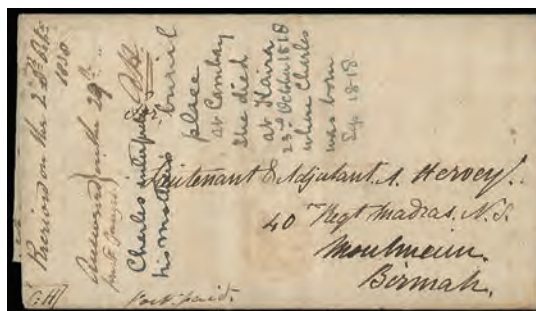 Received on the 28th
1850
Answered on the 29th
Charles
his mother's burial
place
at Cambay
She died
at Kaira
23rd October 1818
when Charles
was born
Sep. 1818.
Lieutenant & Adjutant A. Hervey.
40th Regt Madras. N.I.
Moulmein.
Birmah.
Post paid.
GH